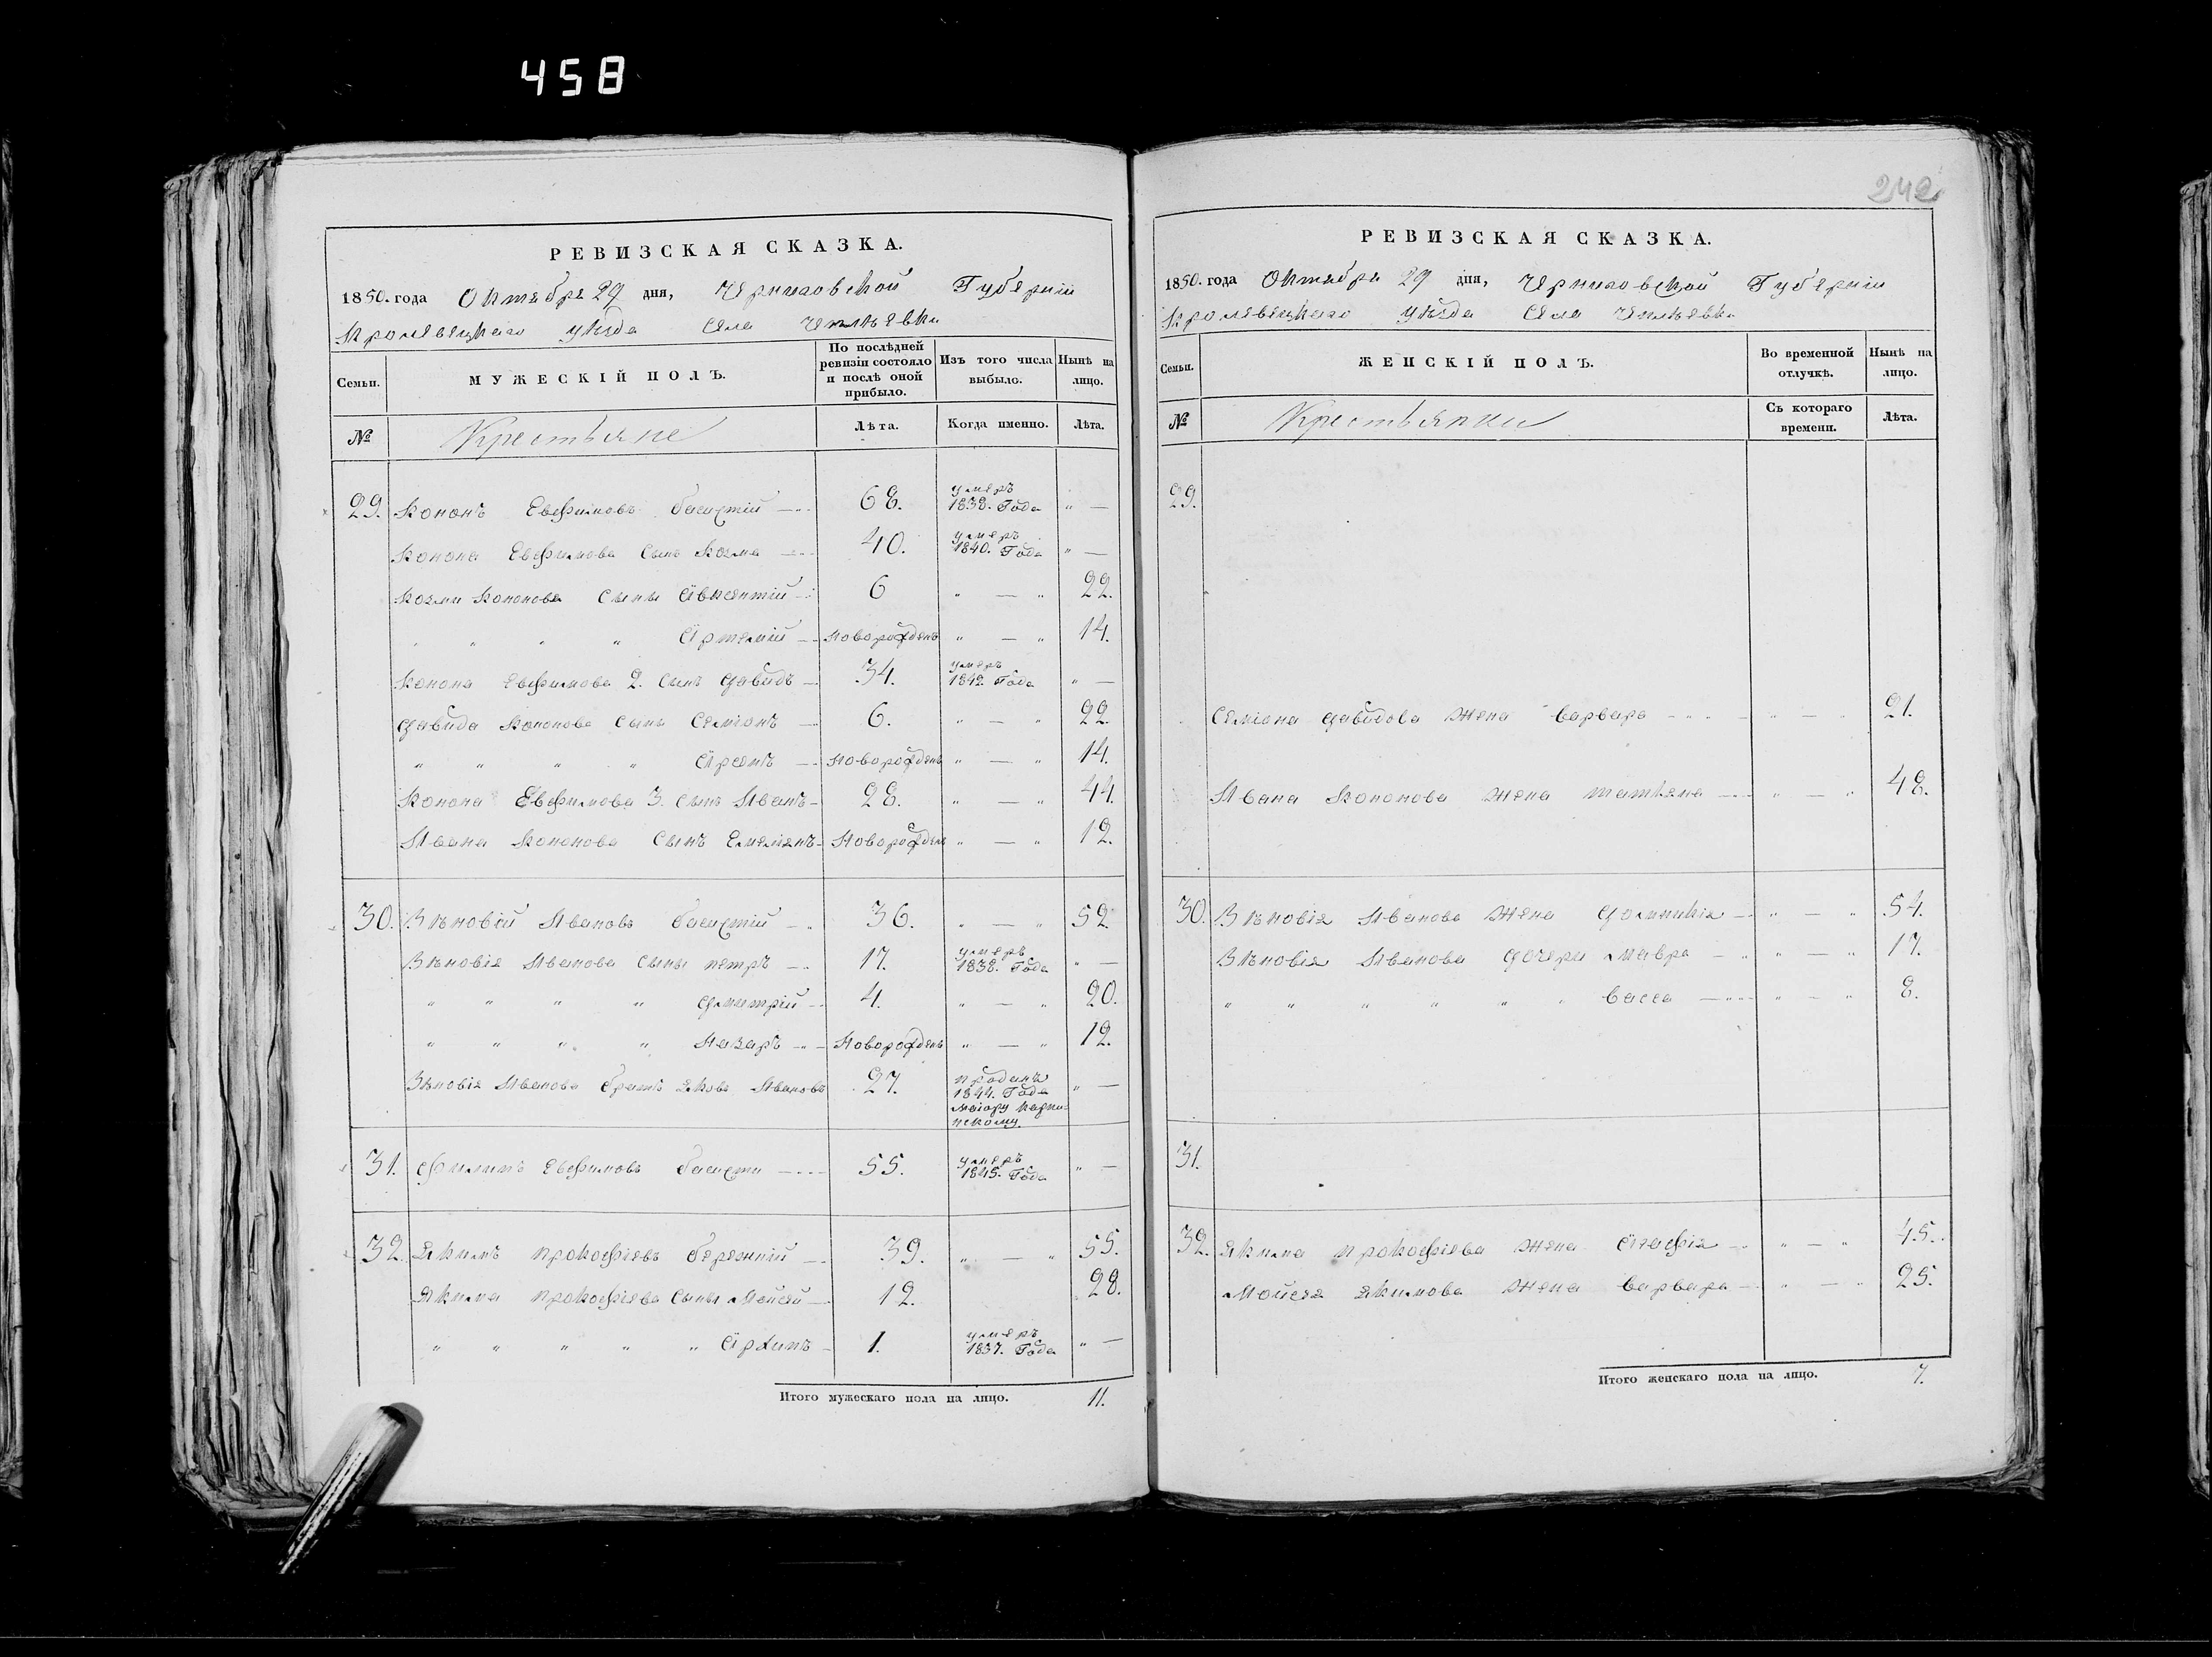 458
РЕВИЗСКАЯ СКАЗКА.
1850. года Октября 29 дня, Черниговской Губерніи
Кролевецкаго уѣзда Села Чеплѣевки
Семьи. МУЖЕСКІЙ ПОЛЪ. По послѣдней ревизіи состояло и послѣ оной прибыло. Изъ того числа выбыло. Нынѣ на лицо.
№ Крестьяне Лѣта. Когда именно. Лѣта.
29. Кононъ Евфимовъ Басистій 68. умеръ 1838. Года " —
Конона Евфимова Сынъ Козма 40. умеръ 1840. Года " —
Козми Кононова Сыны Авксентій 6 " — " 22.
" " " " Артемій Новорожденъ " — " 14.
Конона Евфимова 2. Сынъ Давидъ 34. умеръ 1842. Года " —
Давида Кононова Сыны Семіонъ 6. " — " 22.
" " " " Арсенъ Новорожденъ " — " 14.
Конона Евфимова 3. Сынъ Иванъ 28. " — " 44.
Ивана Кононова Сынъ Емеліянъ Новорожденъ " — " 12.
30. Зѣновій Ивановъ Басистій 36. " — " 52.
Зѣновія Иванова Сыны Петръ 17. умеръ 1838. Года " —
" " " " Дмитрій 4. " — " 20.
" " " " Назаръ Новорожденъ " — " 12.
Зѣновія Иванова братъ Яковъ Ивановъ 27. проданъ 1844. Года Маіору " —
31. Филипъ Евфимовъ Басисти 55. умеръ 1845. Года " —
32. Якимъ Прокофіевъ Бережній 39. " — " 55.
Якима Прокофіева Сыны Мойсей 12. 28.
" " " " " Архипъ 1. умеръ 1837. Года " —
Итого мужескаго пола на лицо. 11.
242
РЕВИЗСКАЯ СКАЗКА.
1850. года Октября 29 дня, Черниговской Губерніи
Кролевецкаго уѣзда Села Чеплѣевки
Семьи. ЖЕНСКІЙ ПОЛЪ. Во временной отлучкѣ. Нынѣ на лицо.
№ Крестьянки Съ котораго времени. Лѣта.
29.
Семіона Давидова Жена Варвара " — " 21.
Ивана Кононова Жена Татіяна " — " 48.
30. Зѣновія Иванова Жена Домникія " — " 54.
Зѣновія Иванова Дочери Мавра " — " 17.
" " " " " " Васса " — " 8.
31.
32. Якима Прокофіева Жена Агафія " — " 45.
Мойсея Якимова Жена Варвара " — " 25.
Итого женскаго пола на лицо. 7.